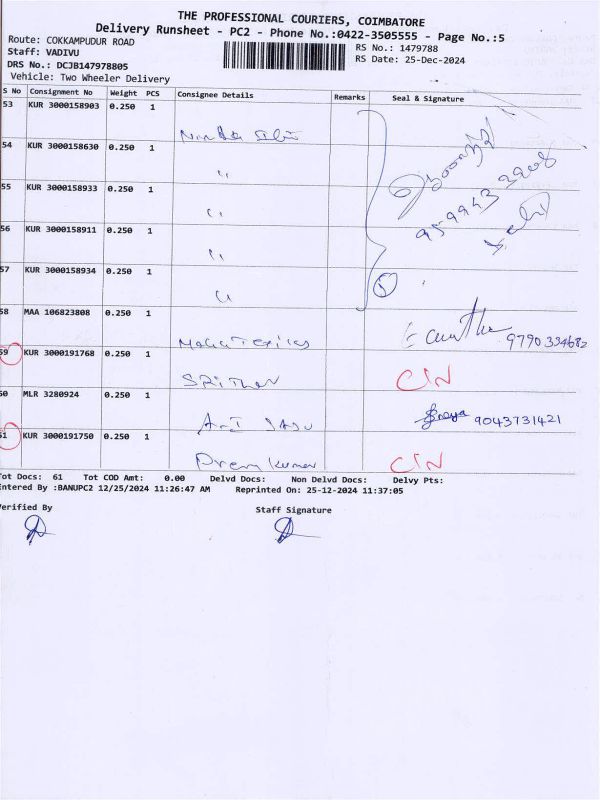 THE PROFESSIONAL COURIERS, COIMBATORE
Delivery Runsheet - PC2 - Phone No.:0422-3505555 - Page No.:5
Route: COKKAMPUDUR ROAD
RS No.: 1479788
Staff: VADIVU
RS Date: 25-Dec-2024
DRS No.: DCJB147978805
Vehicle: Two Wheeler Delivery
S No Consignment No Weight PCS Consignee Details Remarks Seal & Signature
53 KUR 3000158903 0.250 1
54 KUR 3000158630 0.250 1 "
55 KUR 3000158933 0.250 1 "
9599943 3908
56 KUR 3000158911 0.250 1 "
57 KUR 3000158934 0.250 1 "
5
58 MAA 106823808 0.250 1
9790334682
59 KUR 3000191768 0.250 1
SRITHAR C/N
60 MLR 3280924 0.250 1
9043731421
61 KUR 3000191750 0.250 1
Prem kumar C/N
Tot Docs: 61 Tot COD Amt: 0.00 Delvd Docs: Non Delvd Docs: Delvy Pts:
Entered By :BANUPC2 12/25/2024 11:26:47 AM Reprinted On: 25-12-2024 11:37:05
Verified By Staff Signature